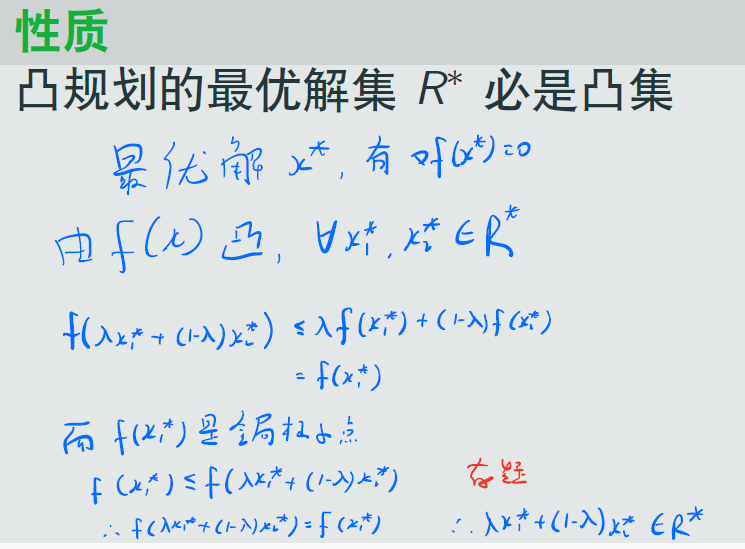 性质
凸规划的最优解集 R* 必是凸集
最优解 x*, 有 ∇f(x*)=0
由 f(x) 凸, ∀x₁*, x₂* ∈ R*
f(λx₁* + (1-λ)x₂*) ≤ λf(x₁*) + (1-λ)f(x₂*)
= f(x₁*)
而 f(x₁*) 是全局极小点
f(x₁*) ≤ f(λx₁* + (1-λ)x₂*)
∴ f(λx₁* + (1-λ)x₂*) = f(x₁*)
∴ λx₁* + (1-λ)x₂* ∈ R*